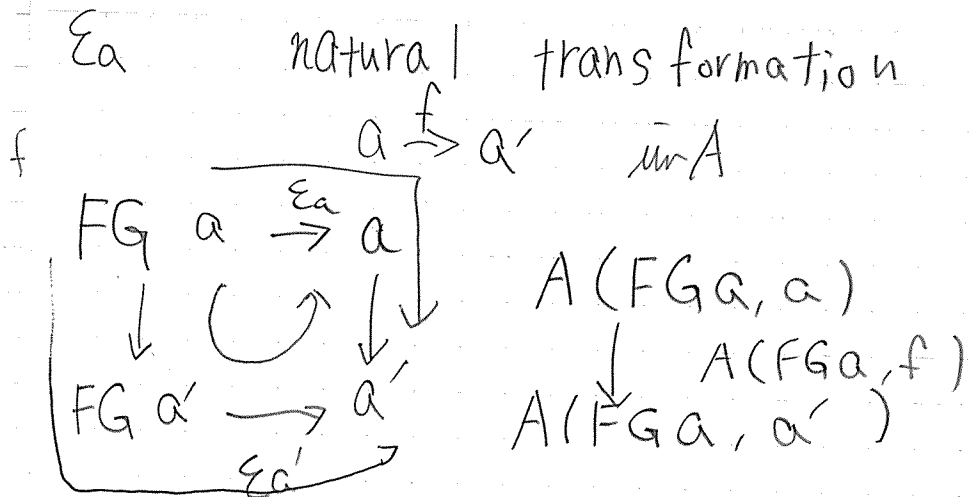 εa natural transformation
f a f→ a′ in A
FG a εa→ a
A(FGa, a)
↓ A(FGa, f)
FG a′ → a′ A(FGa, a′)
εa′